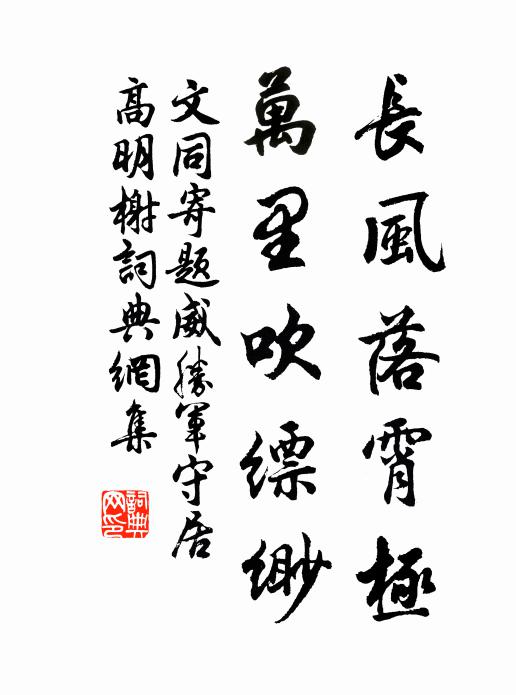 長風落霄極
萬里吹縹緲
文同寄題威勝軍守居
高明榭詞典網集
詞典
网印